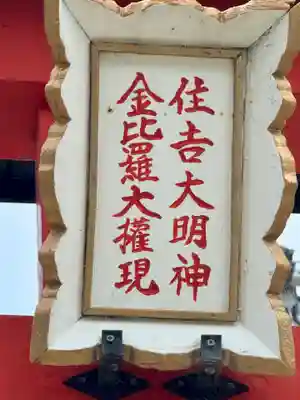 住吉大明神
金比羅大權現